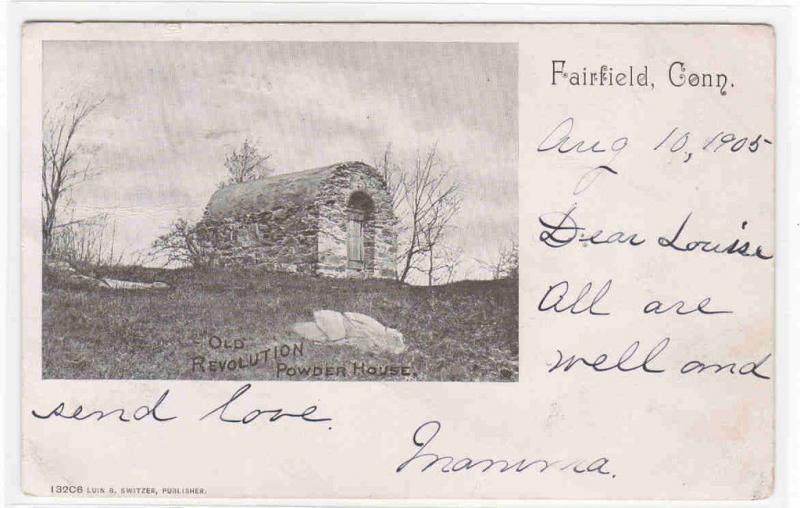 Fairfield, Conn.
Aug 10, 1905
Dear Louise
All are
well and
send love.
Mamma.
Old
Revolution
Powder House.
132C6 LUIN B. SWITZER, PUBLISHER.